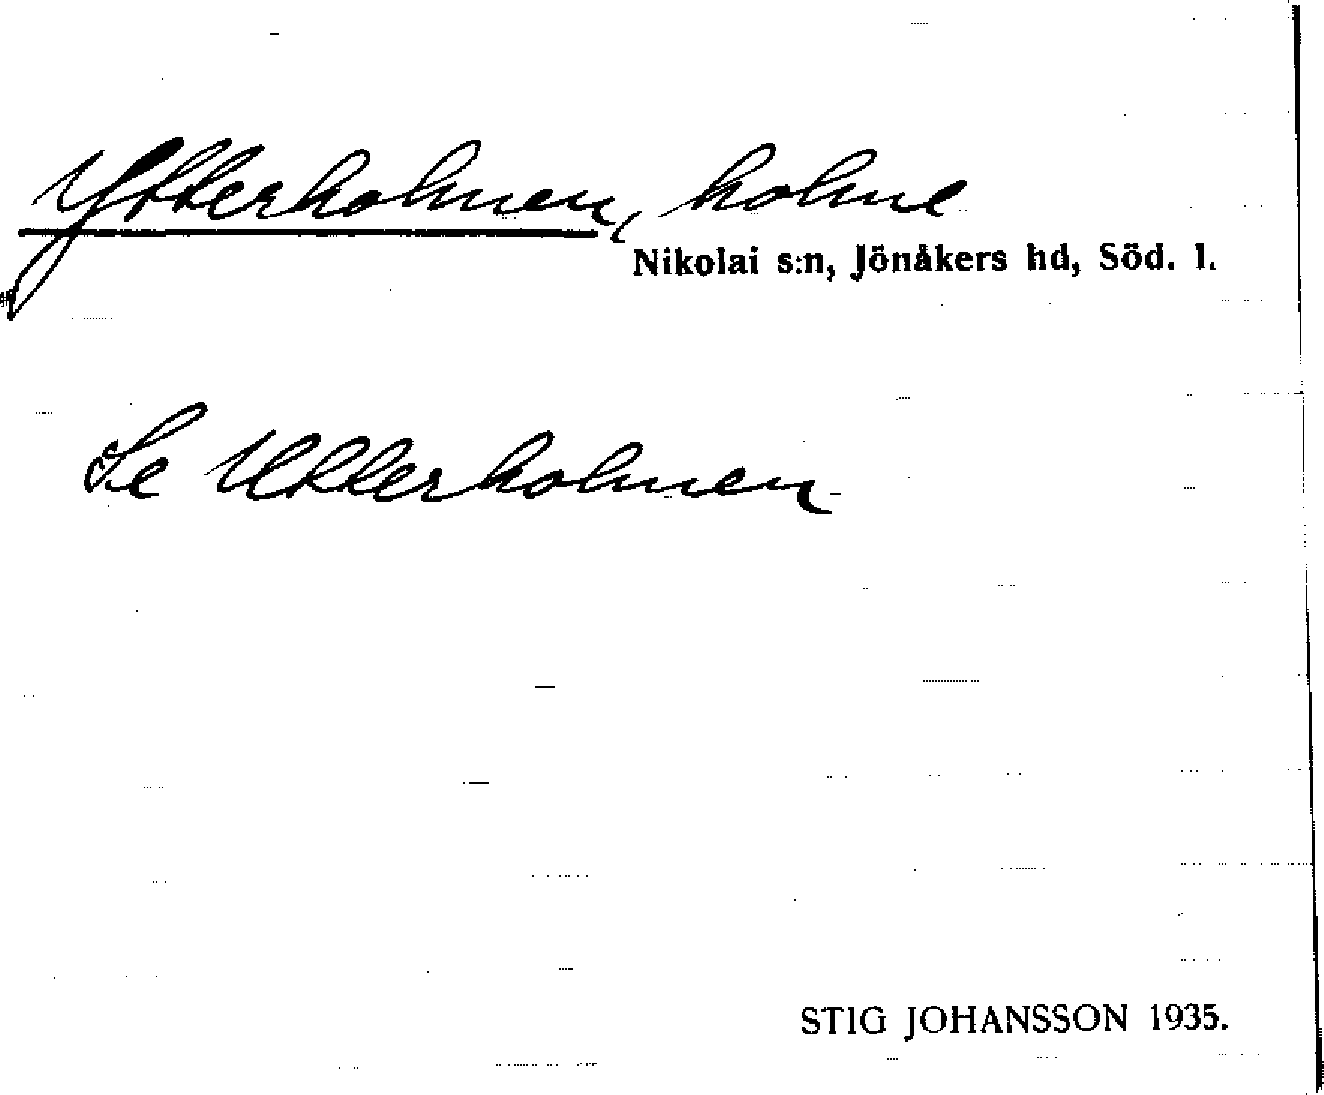 Ytterholmen, holme
Nikolai s:n, Jönåkers hd, Söd. l.
Se Utterholmen
STIG JOHANSSON 1935.